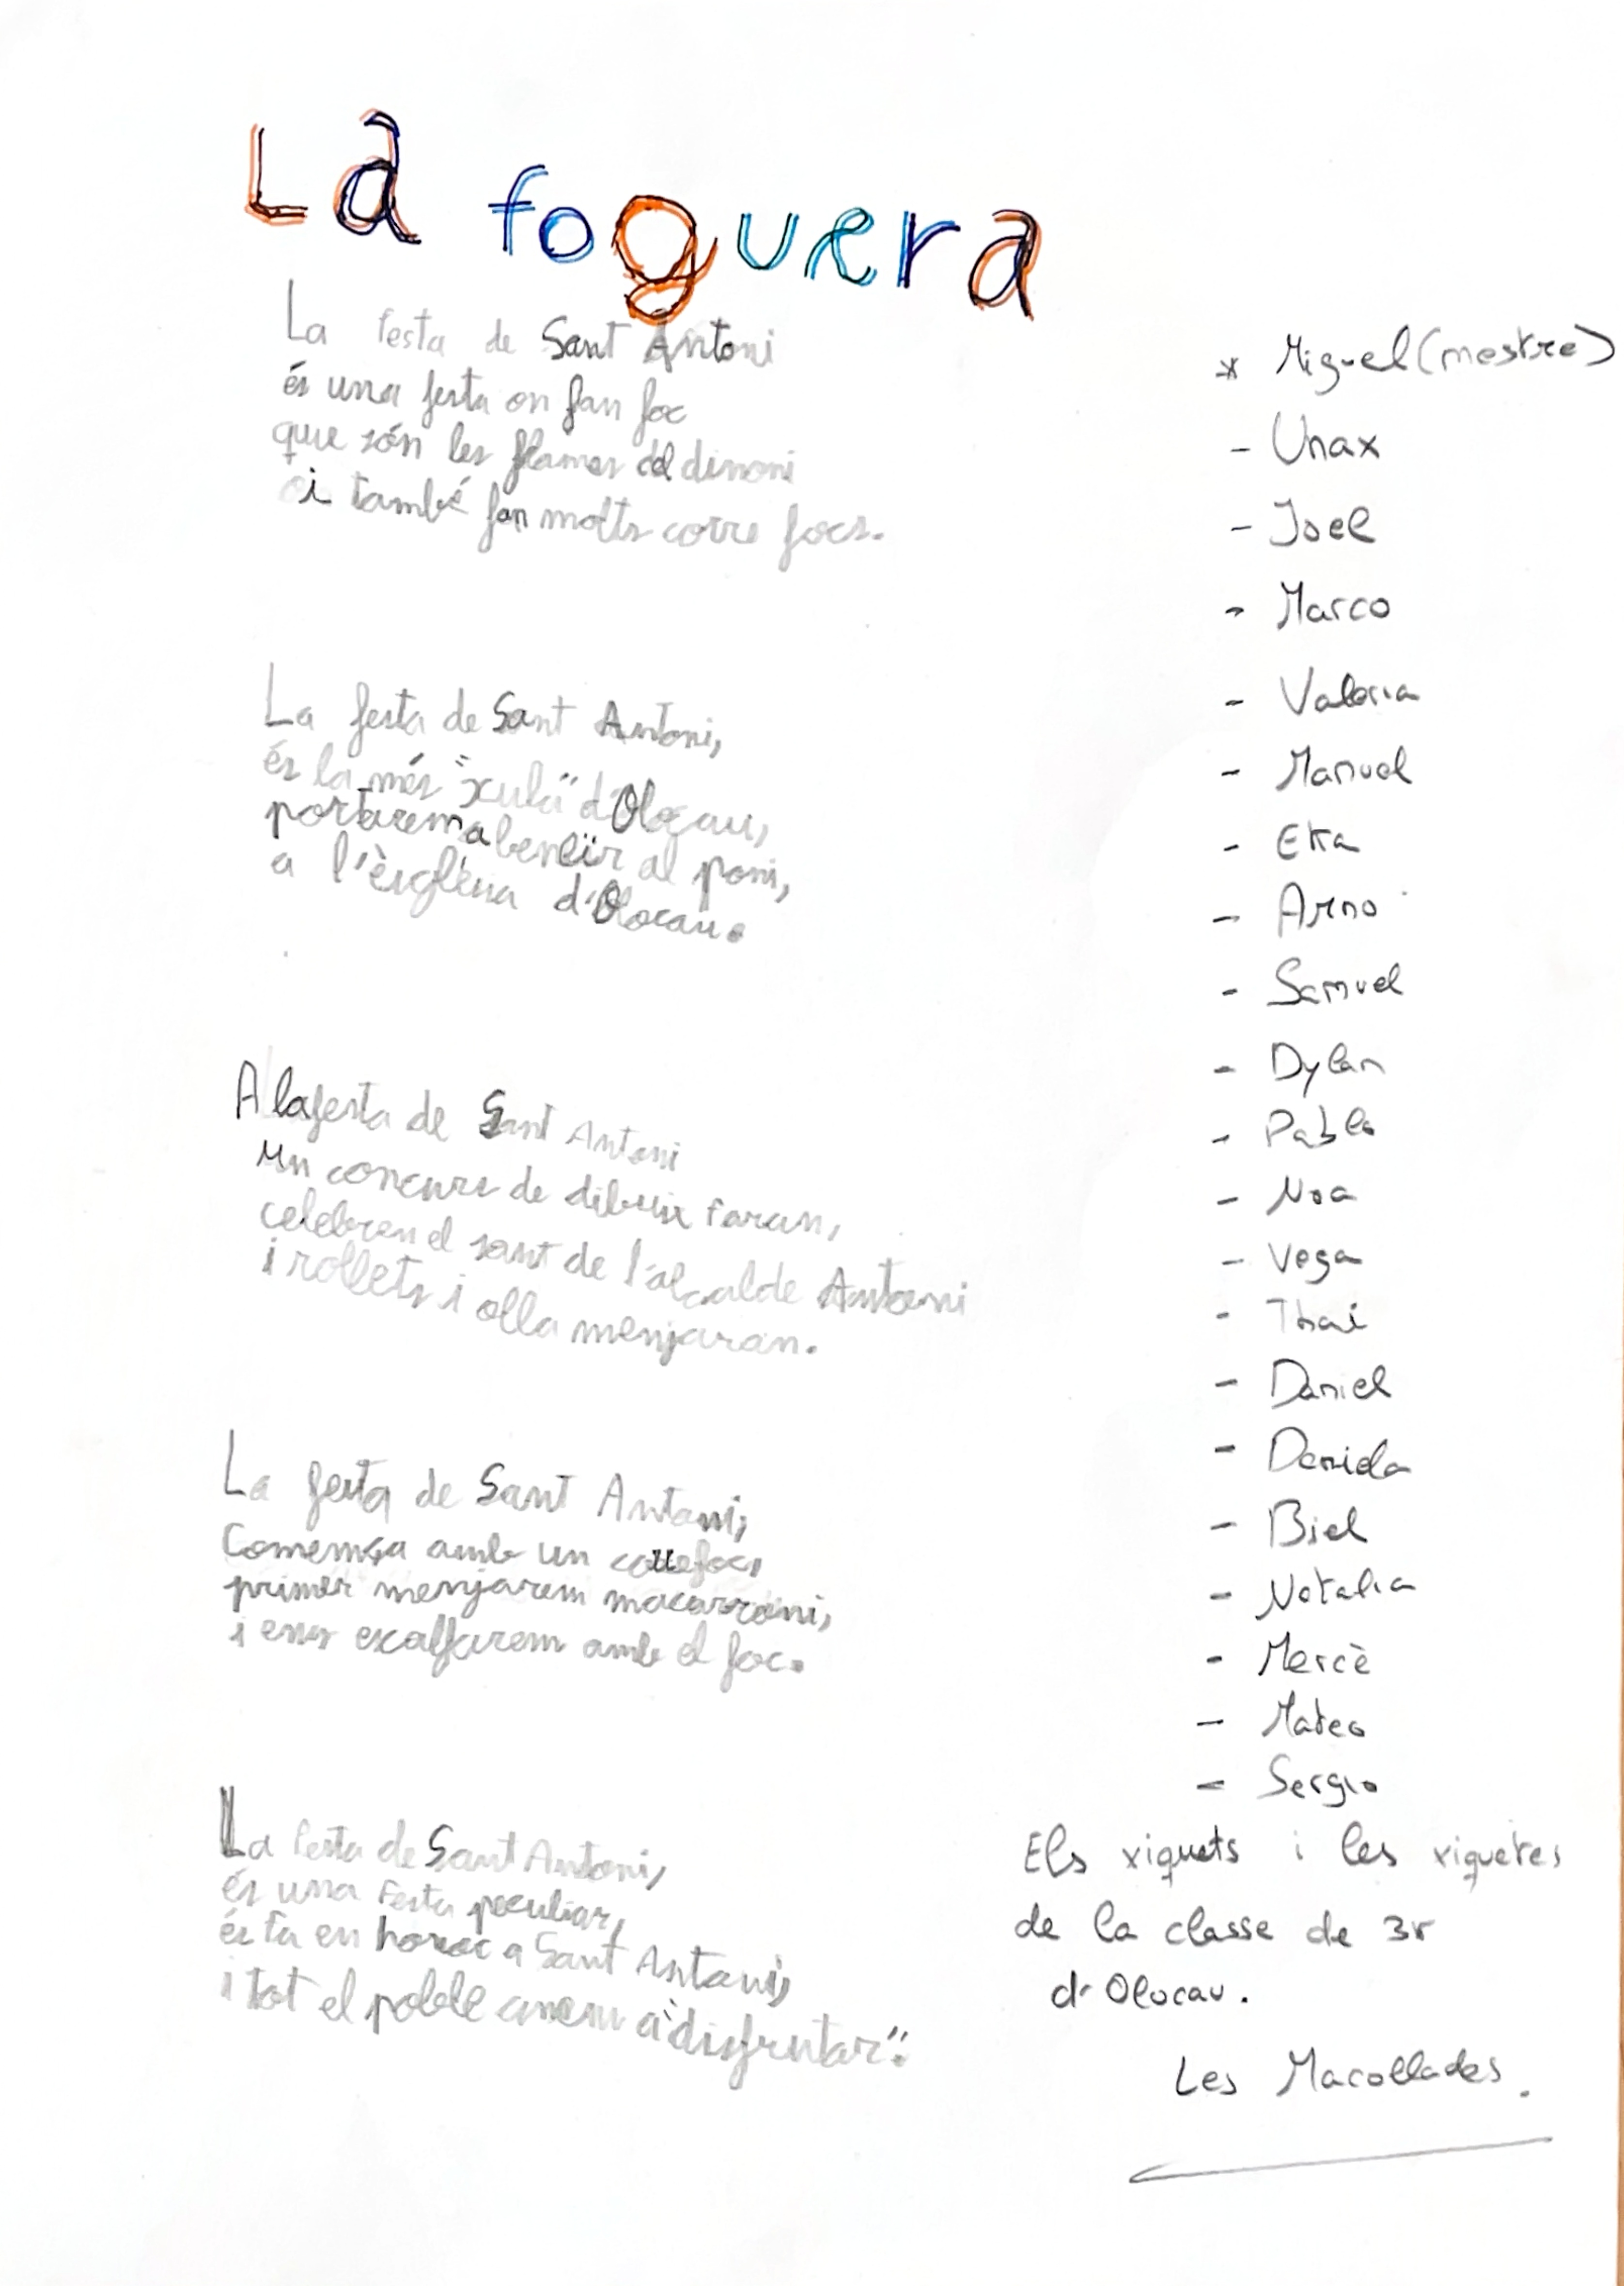 La foguera
La festa de Sant Antoni
és una festa on fan foc
que són les flames del dimoni
i també fan molts corre focs.
La festa de Sant Antoni,
és la més "xula" d'Olocau,
portarem a beneïr al poni,
a l'èsglèsia d'Olocau.
A la festa de Sant Antoni
un concurs de dibuix faran,
celebren el sant de l'alcalde Antoni
i rollets i olla menjaran.
La festa de Sant Antoni,
Comemça amb un correfoc,
primer menjarem macarroni,
i ens escalfarem amb el foc.
La festa de Sant Antoni,
és una festa peculiar,
és fa en honor a Sant Antoni,
i tot el poble anem a "disfrutar".
* Miguel (mestre)
- Unax
- Joel
- Marco
- Valeria
- Manuel
- Etta
- Arno
- Samuel
- Dylan
- Pablo
- Noa
- Vega
- Thai
- Daniel
- Daniela
- Biel
- Natalia
- Mercè
- Mateo
- Sergio
Els xiquets i les xiquetes
de la classe de 3r
d'Olocau.
Les Macollades.